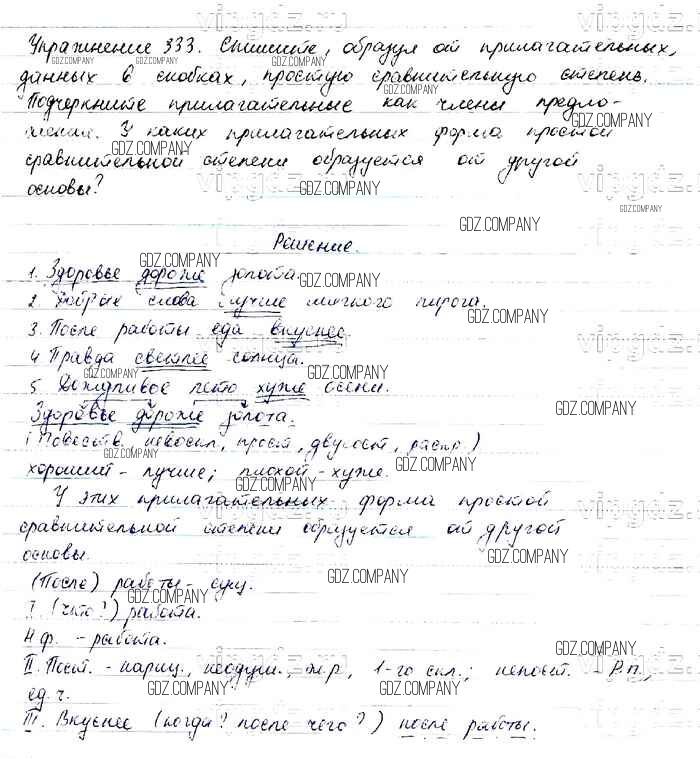 Упражнение 333. Спишите, образуя от прилагательных,
данных в скобках, простую сравнительную степень.
Подчеркните прилагательные как члены предло-
жения. У каких прилагательных форма простой
сравнительной степени образуется от другой
основы?
Решение.
1. Здоровье дороже золота.
2. Добрые слова лучше мягкого пирога.
3. После работы еда вкуснее.
4. Правда светлее солнца.
5. Дождливое лето хуже осени.
Здоровье дороже золота.
(Повеств., невоскл., прост., двусост., распр.)
хороший - лучше; плохой - хуже.
У этих прилагательных форма простой
сравнительной степени образуется от другой
основы.
(После) работы - сущ.
I. (что?) работа.
Н.ф. - работа.
II. Пост. - нариц., неодуш., ж.р., 1-го скл.; непост. - Р.п.,
ед.ч.
III. Вкуснее (когда? после чего?) после работы.
GDZ.COMPANY
vipgdz.ru